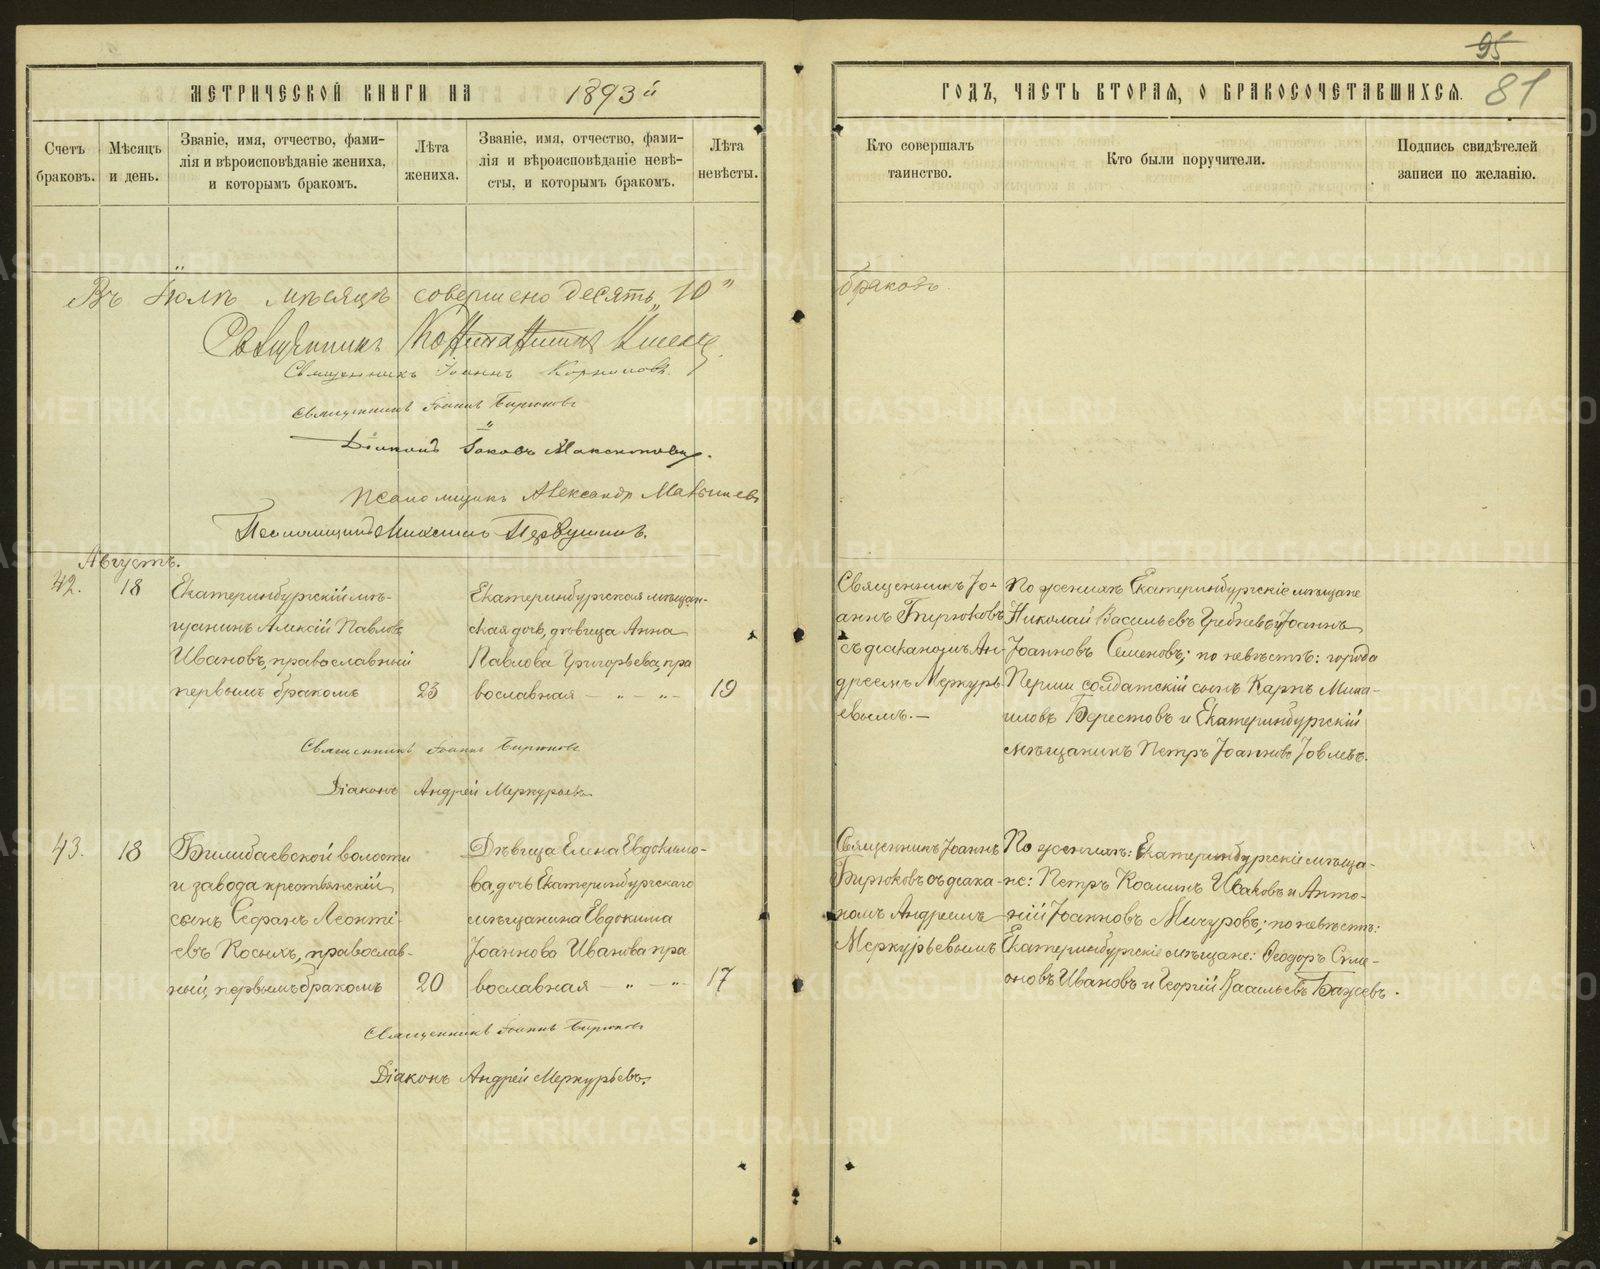 95
81
МЕТРИЧЕСКОЙ КНИГИ НА 1893й
ГОДЪ, ЧАСТЬ ВТОРАЯ, О БРАКОСОЧЕТАВШИХСЯ.
Счетъ браковъ.
Мѣсяцъ и день.
Званіе, имя, отчество, фами-
лія и вѣроисповѣданіе жениха,
и которымъ бракомъ.
Лѣта жениха.
Званіе, имя, отчество, фами-
лія и вѣроисповѣданіе невѣ-
сты, и которымъ бракомъ.
Лѣта невѣсты.
Кто совершалъ
таинство.
Кто были поручители.
Подпись свидѣтелей
записи по желанію.
Въ Іюлѣ мѣсяцѣ совершено десять „10"
браковъ.
Священникъ
Священникъ Іоаннъ
Священникъ Іоаннъ Бирюковъ
Діаконъ Іаковъ
Псаломщикъ Александръ
Псаломщикъ Михаилъ Первушинъ.
Августъ.
42.
18
Екатеринбургскій мѣ-
щанинъ Алексій Павловъ
Ивановъ, православный
первымъ бракомъ
23
Екатеринбургская мѣщан-
ская дочь, дѣвица Анна
Павлова Григорьева, пра
вославная — „ — „ —
19
Священникъ Іо-
аннъ Бирюковъ
съ діакономъ Ан-
дреемъ Меркурь-
евымъ. —
По женихѣ Екатеринбургскіе мѣщане
Николай Васильевъ Гребневъ и Іоаннъ
Іоанновъ Семеновъ; по невѣстѣ: города
Перми солдатскій сынъ Карпъ Миха-
иловъ Берестовъ и Екатеринбургскій
мѣщанинъ Петръ Іоанновъ Іовлевъ.
Священникъ Іоаннъ Бирюковъ
Діаконъ Андрей Меркурьевъ
43.
18
Билимбаевской волости
и завода крестьянскій
сынъ Стефанъ Леонті-
евъ Косыхъ, православ-
ный, первымъ бракомъ
20
Дѣвица Елена Евдокимо-
ва, дочь Екатеринбургскаго
мѣщанина Евдокима
Іоаннова Иванова пра
вославная — „ — „ —
17
Священникъ Іоаннъ
Бирюковъ съ діако-
номъ Андреемъ
Меркурьевымъ
По женихѣ: Екатеринбургскіе мѣща-
не: Петръ Косминъ Иваковъ и Анто-
ній Іоанновъ Мичуровъ; по невѣстѣ:
Екатеринбургскіе мѣщане: Ѳеодоръ Симе-
оновъ Ивановъ и Георгій Васильевъ Бажевъ.
Священникъ Іоаннъ Бирюковъ
Діаконъ Андрей Меркурьевъ.
METRIKI.GASO-URAL.RU